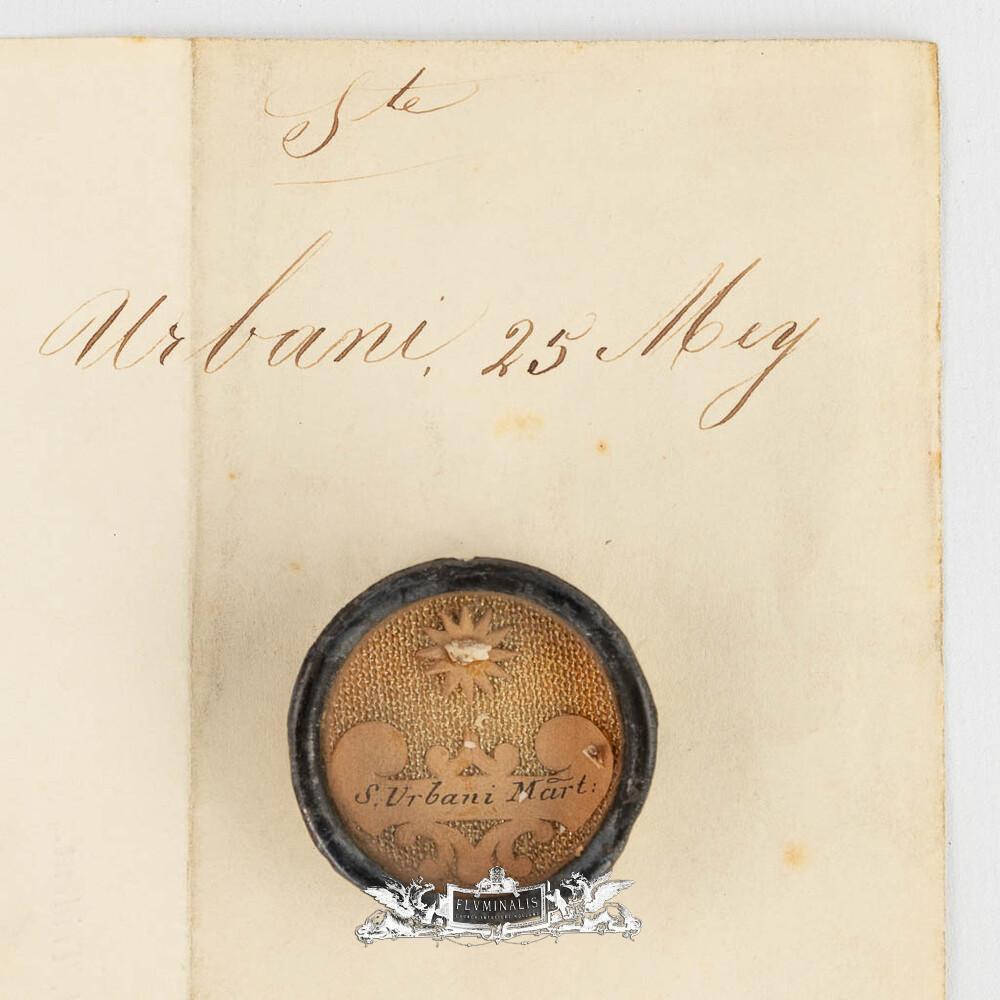 Ste
Urbani, 25 Mey
S. Urbani Mart:
FLVMINALIS